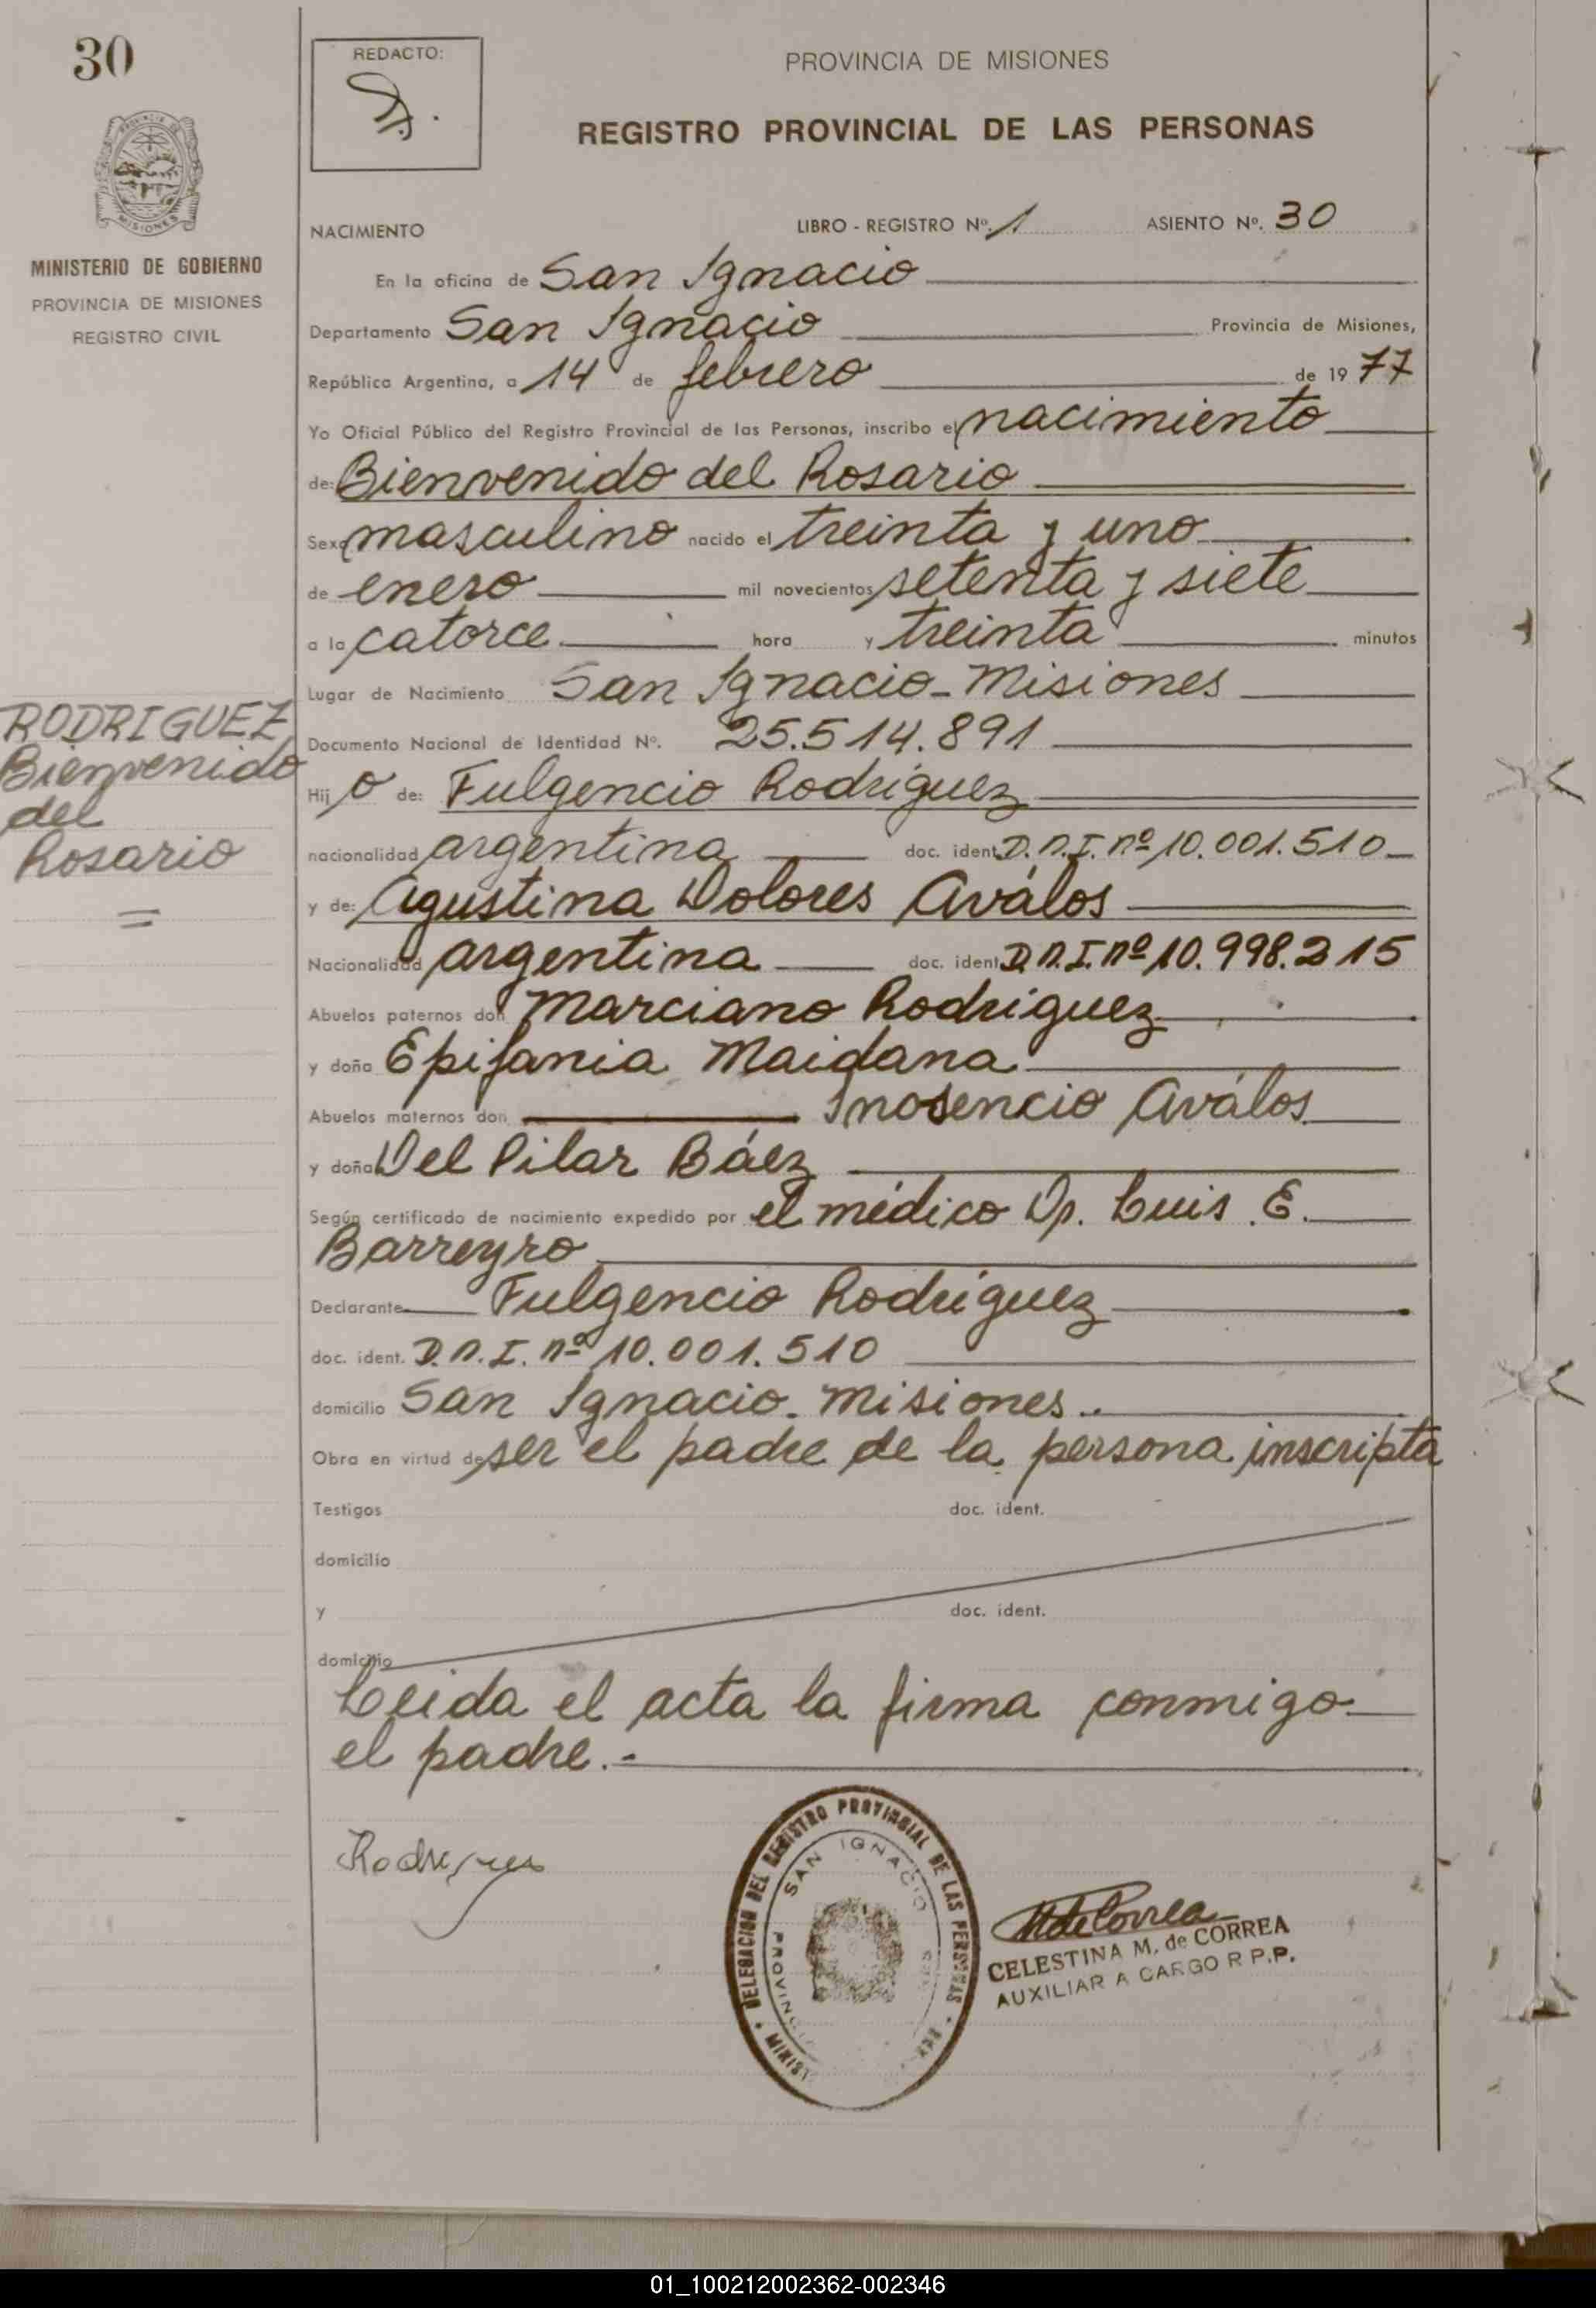 30
REDACTO:
PROVINCIA DE MISIONES
REGISTRO PROVINCIAL DE LAS PERSONAS
MINISTERIO DE GOBIERNO
PROVINCIA DE MISIONES
REGISTRO CIVIL
NACIMIENTO LIBRO - REGISTRO Nº. 1 ASIENTO Nº. 30
En la oficina de San Ignacio
Departamento San Ignacio Provincia de Misiones,
República Argentina, a 14 de febrero de 19 77
Yo Oficial Público del Registro Provincial de las Personas, inscribo el nacimiento
de: Bienvenido del Rosario
Sexo masculino nacido el treinta y uno
de enero mil novecientos setenta y siete
a la catorce hora y treinta minutos
Lugar de Nacimiento San Ignacio - Misiones
RODRIGUEZ,
Bienvenido
del
Rosario
Documento Nacional de Identidad Nº. 25.514.891
Hij o de: Fulgencio Rodríguez
nacionalidad argentina doc. ident. D.N.I. nº 10.001.510
y de: Agustina Dolores Aválos
Nacionalidad argentina doc. ident. D.N.I. nº 10.998.215
Abuelos paternos don Marciano Rodríguez
y doña Epifania Maidana
Abuelos maternos don Inosencio Aválos
y doña Del Pilar Báez
Según certificado de nacimiento expedido por el médico Dr. Luis E.
Barreyro
Declarante Fulgencio Rodríguez
doc. ident. D.N.I. nº 10.001.510
domicilio San Ignacio - Misiones.
Obra en virtud de ser el padre de la persona inscripta
Testigos doc. ident.
domicilio
y doc. ident.
domicilio
Leida el acta la firma conmigo
el padre.-
DELEGACION DEL REGISTRO PROVINCIAL DE LAS PERSONAS
SAN IGNACIO
CELESTINA M. de CORREA
AUXILIAR A CARGO R P.P.
01_100212002362-002346